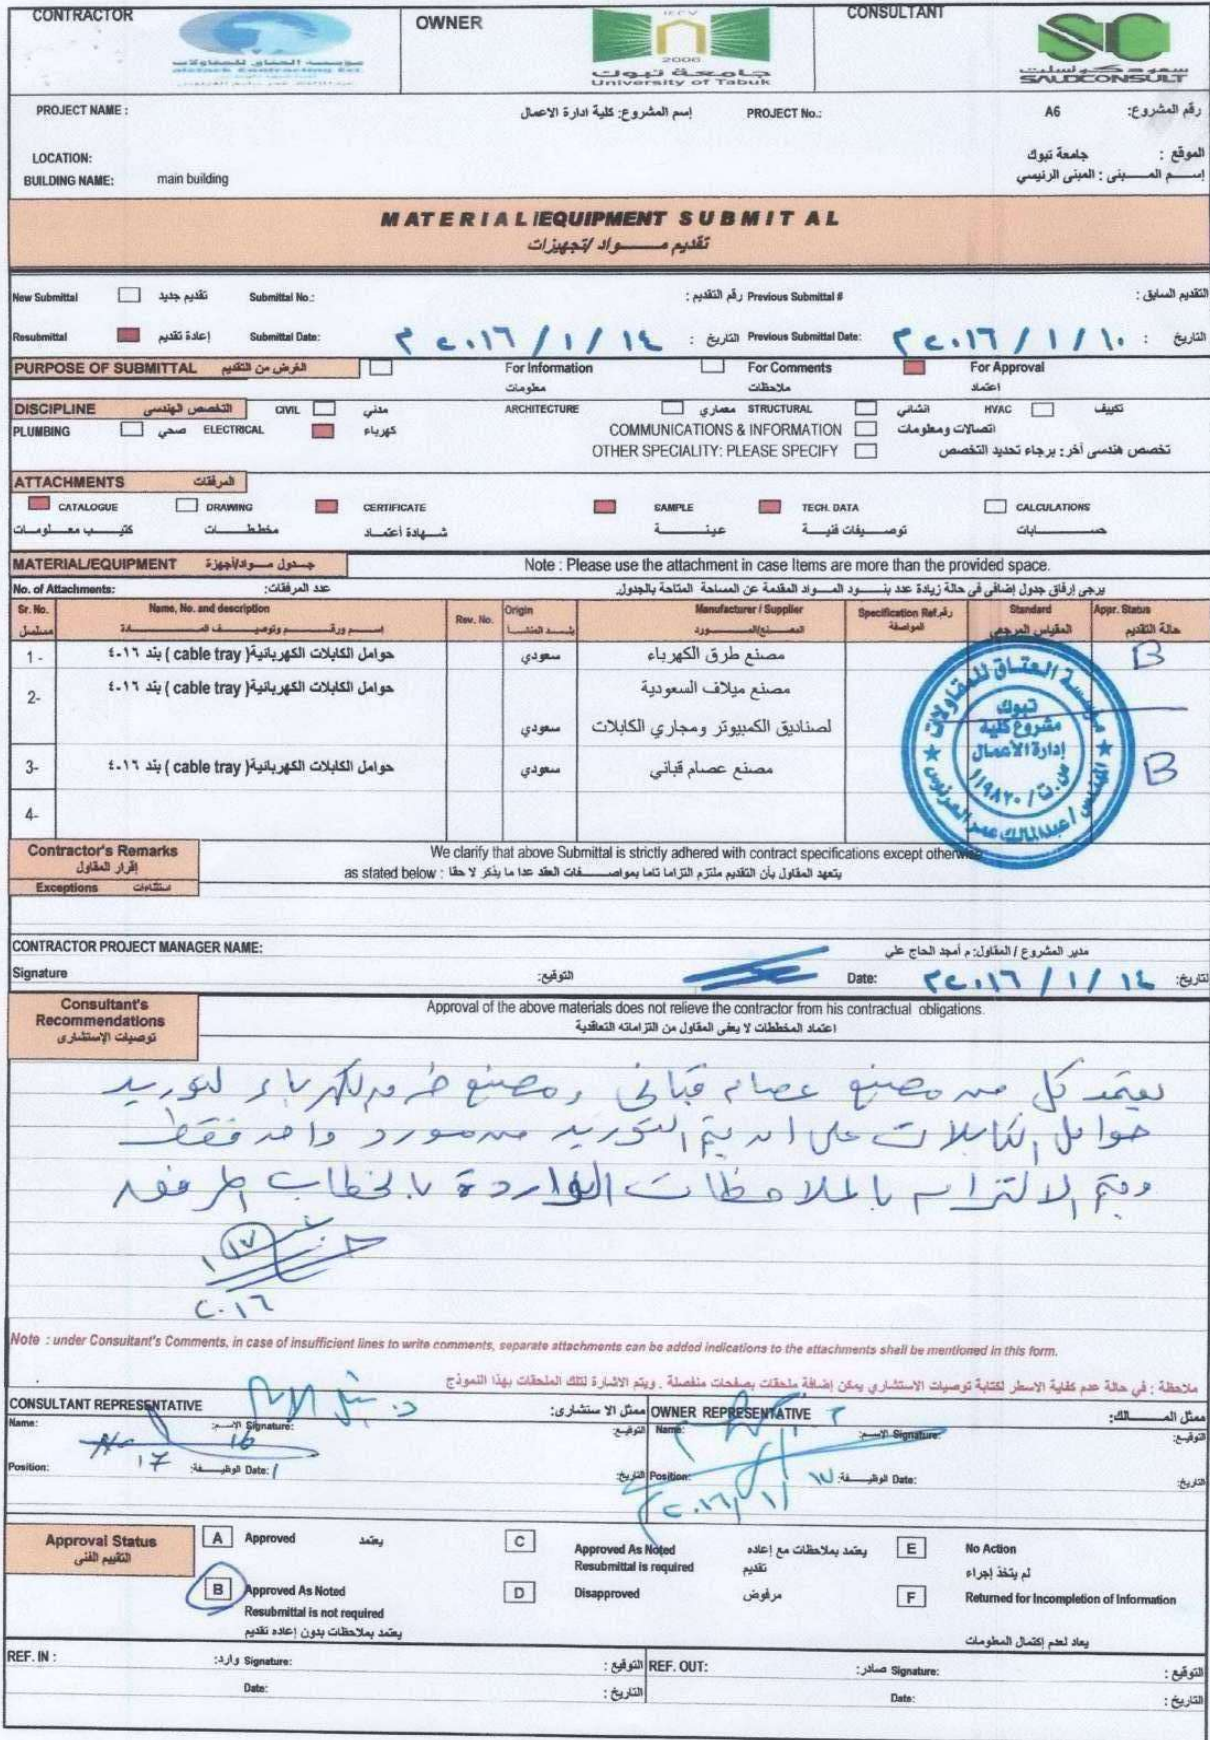 CONTRACTOR
مؤسسة العتاق للمقاولات
OWNER
2006
جامعة تبوك
University of Tabuk
CONSULTANT
SC
سعود كونسلت
SAUDCONSULT
PROJECT NAME :
إسم المشروع: كلية ادارة الاعمال
PROJECT No.:
A6
رقم المشروع:
LOCATION:
جامعة تبوك
الموقع :
BUILDING NAME: main building
إسم المبنى : المبنى الرئيسي
MATERIAL/EQUIPMENT SUBMITAL
تقديم مواد /تجهيزات
New Submittal تقديم جديد Submittal No.: رقم التقديم : Previous Submittal # التقديم السابق :
Resubmittal إعادة تقديم Submittal Date: ٢٠١٦ / ١ / ١٤ م التاريخ : Previous Submittal Date: ٢٠١٦ / ١ / ١٠ م التاريخ :
PURPOSE OF SUBMITTAL الغرض من التقديم For Information For Comments For Approval
معلومات ملاحظات اعتماد
DISCIPLINE التخصص الهندسى CIVIL مدني ARCHITECTURE معماري STRUCTURAL انشائي HVAC تكييف
PLUMBING صحي ELECTRICAL كهرباء COMMUNICATIONS & INFORMATION اتصالات ومعلومات
OTHER SPECIALITY: PLEASE SPECIFY تخصص هندسى آخر: برجاء تحديد التخصص
ATTACHMENTS المرفقات
CATALOGUE DRAWING CERTIFICATE SAMPLE TECH. DATA CALCULATIONS
كتيب معلومات مخططات شهادة أعتماد عينة توصيفات فنية حسابات
MATERIAL/EQUIPMENT جدول مواد/أجهزة Note : Please use the attachment in case Items are more than the provided space.
No. of Attachments: عدد المرفقات: يرجى إرفاق جدول إضافى فى حالة زيادة عدد بنود المواد المقدمة عن المساحة المتاحة بالجدول.
Sr. No. Name, No. and description Rev. No. Origin Manufacturer / Supplier Specification Ref. رقم المواصفة Standard Appr. Status
مسلسل إسم ورقم وتوصيف المادة بلد المنشأ المصنع/المورد المقياس المرجعى حالة التقديم
1 - حوامل الكابلات الكهربائية( cable tray ) بند ٤٠١٦ سعودي مصنع طرق الكهرباء B
2- حوامل الكابلات الكهربائية( cable tray ) بند ٤٠١٦ مصنع ميلاف السعودية
سعودي لصناديق الكمبيوتر ومجاري الكابلات
3- حوامل الكابلات الكهربائية( cable tray ) بند ٤٠١٦ سعودي مصنع عصام قباني B
4-
مؤسسة العتاق للمقاولات
تبوك
مشروع كلية
إدارة الأعمال
س.ت / ١١٩٨٢٠
Contractor's Remarks
إقرار المقاول
We clarify that above Submittal is strictly adhered with contract specifications except otherwise
as stated below : يتعهد المقاول بأن التقديم ملتزم التزاما تاما بمواصفات العقد عدا ما يذكر لا حقا
Exceptions استثناءات
CONTRACTOR PROJECT MANAGER NAME: مدير المشروع / المقاول: م أمجد الحاج علي
Signature التوقيع: Date: ٢٠١٦ / ١ / ١٤ م تاريخ:
Consultant's
Recommendations
توصيات الإستشارى
Approval of the above materials does not relieve the contractor from his contractual obligations.
اعتماد المخططات لا يعفى المقاول من التزاماته التعاقدية
يعتمد كل من مصنع عصام قباني ومصنع طرق الكهرباء لتوريد
حوامل الكابلات على ان يتم التوريد من مورد واحد فقط
ويتم الالتزام بالملاحظات الواردة بالخطاب المرفق
١٧
١
٢٠١٦
Note : under Consultant's Comments, in case of insufficient lines to write comments, separate attachments can be added indications to the attachments shall be mentioned in this form.
ملاحظة : في حالة عدم كفاية الاسطر لكتابة توصيات الاستشاري يمكن إضافة ملحقات بصفحات منفصلة . ويتم الاشارة لتلك الملحقات بهذا النموذج
CONSULTANT REPRESENTATIVE ممثل الا ستشارى: OWNER REPRESENTATIVE ممثل المالك:
Name: الاسم: Signature: التوقيع: Name: الاسم: Signature: التوقيع:
16
17
Position: الوظيفة: Date: التاريخ: Position: الوظيفة: Date: التاريخ:
٢٠١٦/ ١/ ١٧
Approval Status
التقييم الفنى
A Approved يعتمد
B Approved As Noted
Resubmittal is not required
يعتمد بملاحظات بدون إعاده تقديم
C Approved As Noted
Resubmittal is required
يعتمد بملاحظات مع إعاده
تقديم
D Disapproved مرفوض
E No Action
لم يتخذ إجراء
F Returned for Incompletion of Information
يعاد لعدم إكتمال المعلومات
REF. IN : وارد: Signature: التوقيع : REF. OUT: صادر: Signature: التوقيع :
Date: التاريخ : Date: التاريخ :